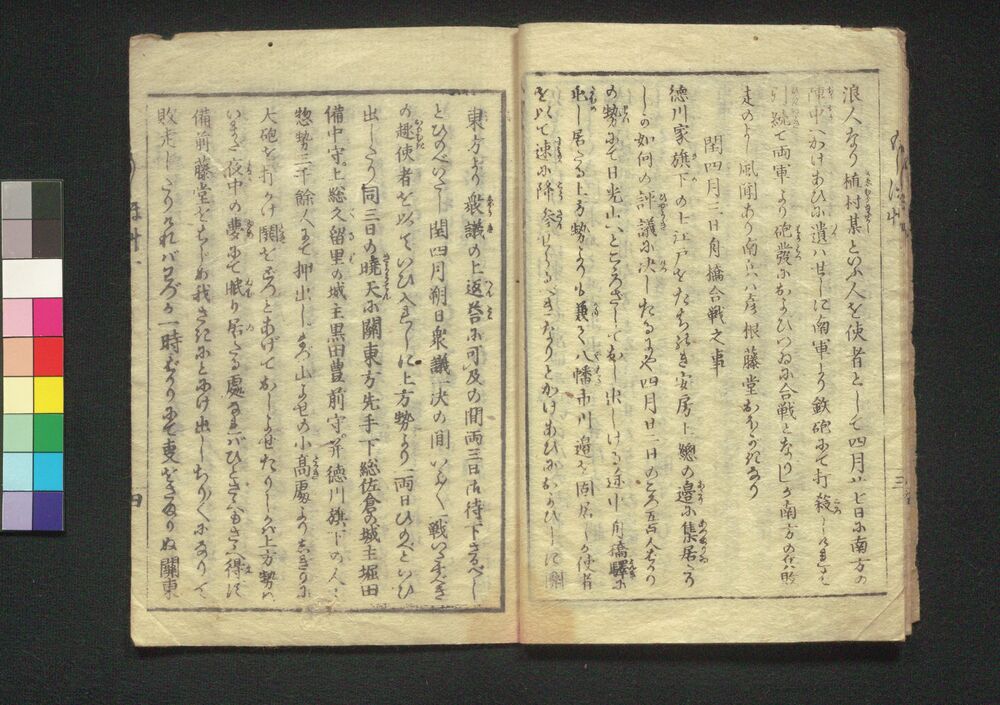 浪人なり植村某といふ人を使者として四月廿七日に南方の
陣中へかけあひに遣はせしに南軍より鉄砲にて打殺し
引続て両軍より砲発におよびつゐに合戦となりしが南方の
走のよし風聞あり南方ハ彦根藤堂なり
閏四月三日舟橋合戦之事
徳川家旗下の士江戸をたちのき安房上総の辺に集居たり
しの如何の評議に決したるにや四月日一日のころ五百人ばかり
の勢にて日光山へところざしておし出しける途中舟橋駅に
屯し居たる上方勢よりも兼て八幡市川辺を固居しが使者
を以て速に降参いたすべきなりとかけあひにおよびしに関
東方より衆議の上返答に可及の間両三日御待下さるべし
とひのべいたし閏四月朔日衆議一決の間いよ〳〵一戦いたすべき
の趣使者を以ていひ入れしに上方勢より一両日ひのべといひ
出したり同三日の暁天に関東方先手下総佐倉の城主堀田
備中守上総久留里の城主黒田豊前守并徳川旗下の人々
惣勢三千餘人にて押出しまづ山よせの小高処よりしきりに
大砲を打かけ鬨をどつとあげておしよせたりしが上方勢ハ
いまだ夜中の夢にて眠り居たる処なればひとささへもささへ得ず
備前藤堂をはじめ我さきにとにげ出しちり〴〵になりて
敗走したりけれバわづか一時ばかりにて事をさまりぬ関東
三
四